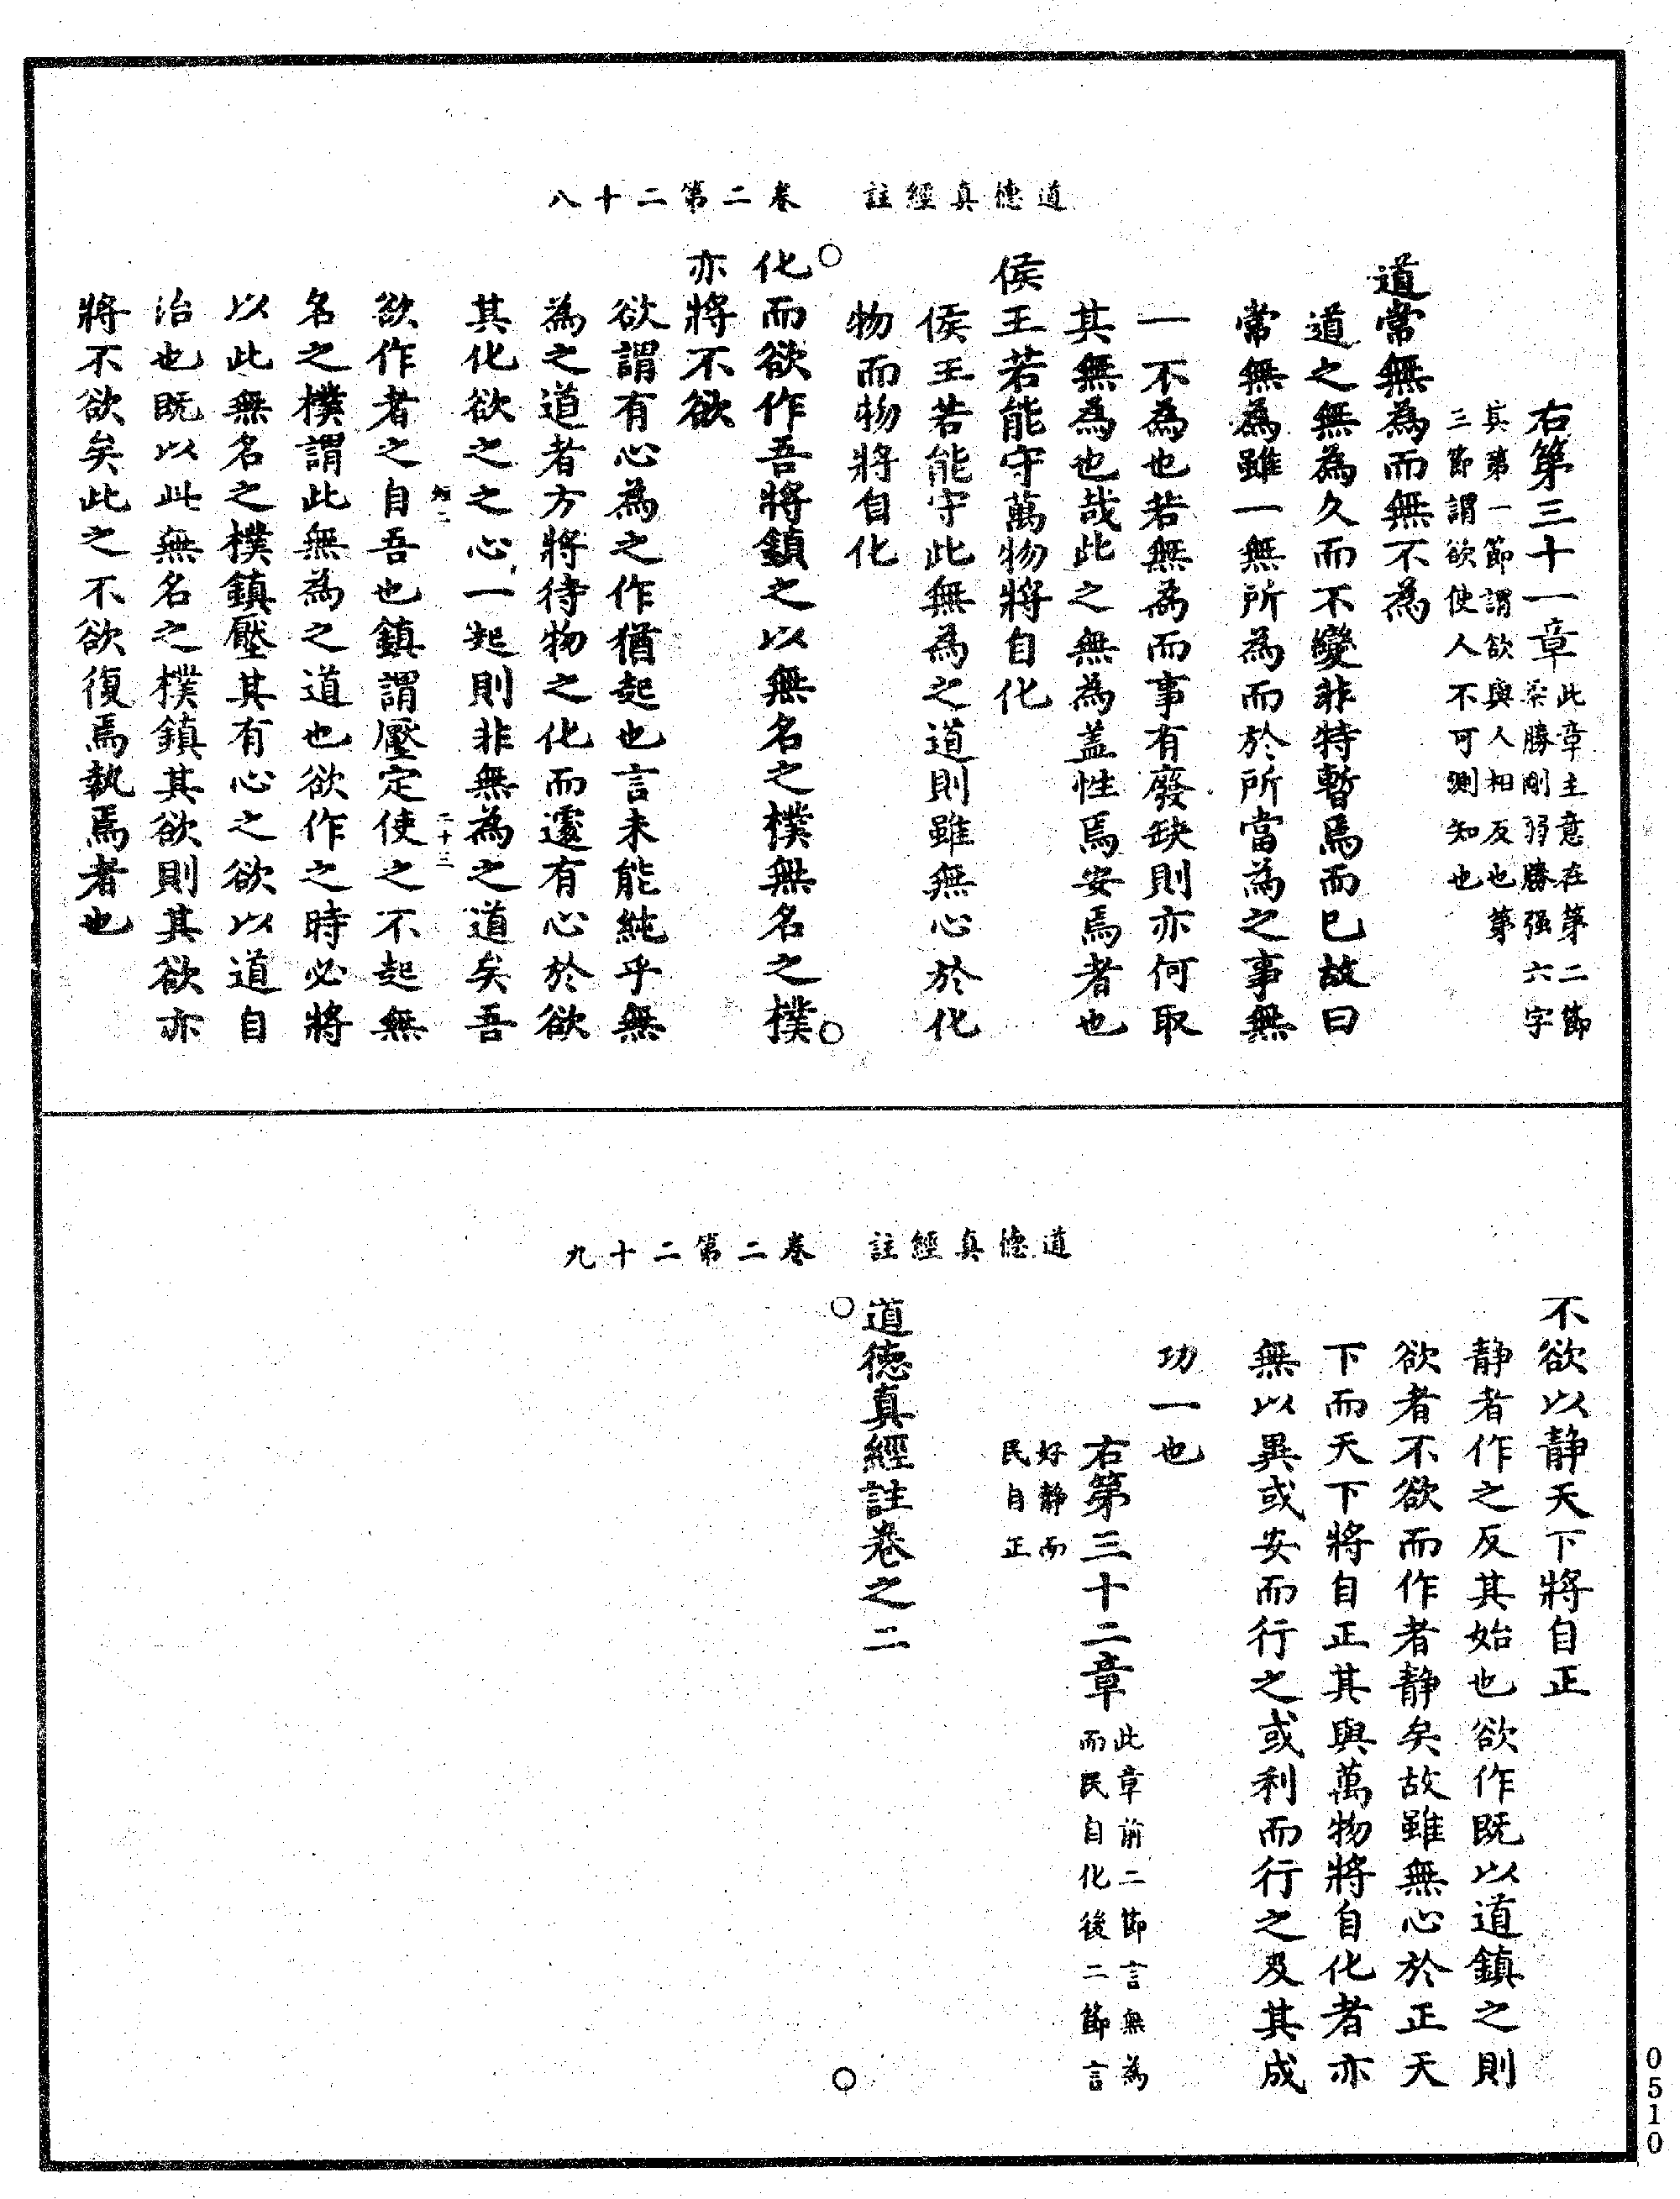 道德真經註　卷二第二十八
右第三十一章
此章主意在第二節
柔勝剛弱勝强六字
其第一節謂欲與人相反也第
三節謂欲使人不可測知也
道常無為而無不為
道之無為久而不變非特暫焉而已故曰
常無為雖一無所為而於所當為之事無
一不為也若無為而事有廢缺則亦何取
其無為也哉此之無為蓋性焉安焉者也
侯王若能守萬物將自化
侯王若能守此無為之道則雖無心於化
物而物將自化
化而欲作吾將鎮之以無名之樸無名之樸
亦將不欲
欲謂有心為之作猶起也言未能純乎無
為之道者方將待物之化而遽有心於欲
其化欲之之心一起則非無為之道矣吾
二十三
欲作者之自吾也鎮謂壓定使之不起無
名之樸謂此無為之道也欲作之時必將
以此無名之樸鎮壓其有心之欲以道自
治也既以此無名之樸鎮其欲則其欲亦
將不欲矣此之不欲復焉執焉者也
道德真經註　卷二第二十九
不欲以靜天下將自正
靜者作之反其始也欲作既以道鎮之則
欲者不欲而作者靜矣故雖無心於正天
下而天下將自正其與萬物將自化者亦
無以異或安而行之或利而行之及其成
功一也
右第三十二章
此章前二節言無為
而民自化後二節言
好靜而
民自正
道德真經註卷之二
0510